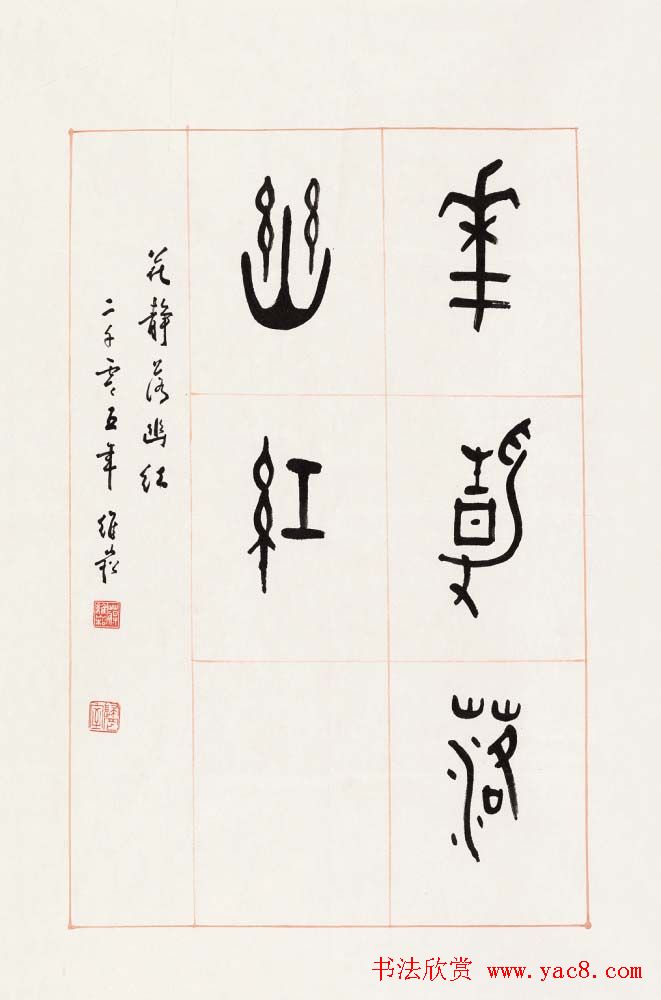 華靜落
幽紅
花静落幽红
二千零五年 维崧
书法欣赏 www.yac8.com